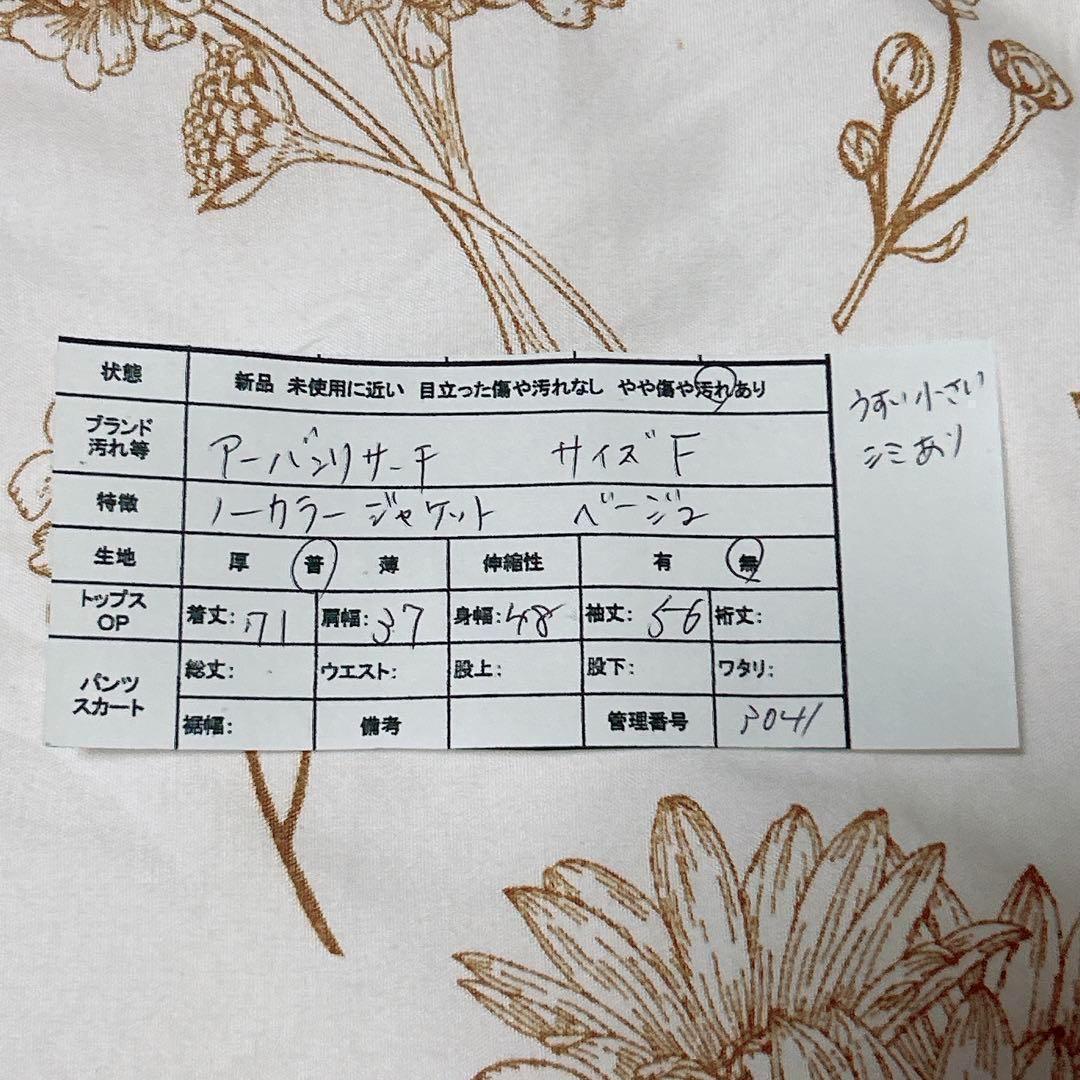 状態 新品 未使用に近い 目立った傷や汚れなし やや傷や汚れあり
ブランド
汚れ等
アーバンリサーチ サイズ F
特徴 ノーカラージャケット ベージュ
生地 厚 普 薄 伸縮性 有 無
トップス
OP
着丈: 71 肩幅: 37 身幅: 48 袖丈: 56 裄丈:
パンツ
スカート
総丈: ウエスト: 股上: 股下: ワタリ:
裾幅: 備考 管理番号 3041
うすい小さい
シミあり